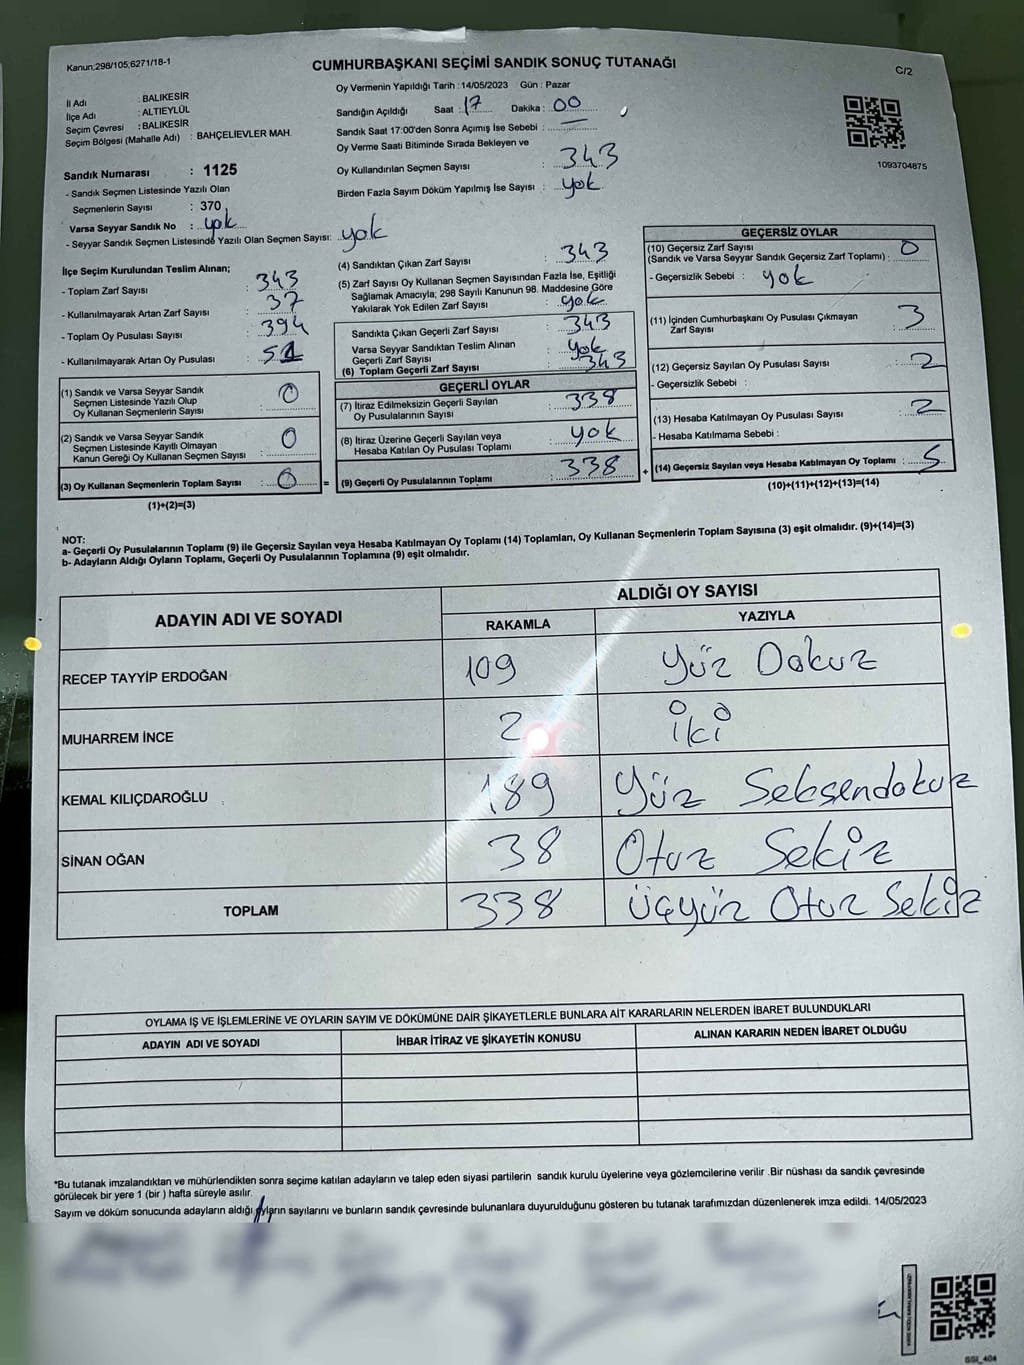 Kanun:298/105;6271/18-1
CUMHURBAŞKANI SEÇİMİ SANDIK SONUÇ TUTANAĞI
C/2
İl Adı : BALIKESİR
İlçe Adı : ALTIEYLÜL
Seçim Çevresi : BALIKESİR
Seçim Bölgesi (Mahalle Adı) : BAHÇELİEVLER MAH.
Sandık Numarası : 1125
- Sandık Seçmen Listesinde Yazılı Olan
Seçmenlerin Sayısı : 370
Varsa Seyyar Sandık No : yok
- Seyyar Sandık Seçmen Listesinde Yazılı Olan Seçmen Sayısı: yok
Oy Vermenin Yapıldığı Tarih : 14/05/2023 Gün : Pazar
Sandığın Açıldığı Saat : 17 Dakika : 00
Sandık Saat 17:00'den Sonra Açımış İse Sebebi : —
Oy Verme Saati Bitiminde Sırada Bekleyen ve
Oy Kullandırılan Seçmen Sayısı : 343
Birden Fazla Sayım Döküm Yapılmış İse Sayısı : yok
1093704875
İlçe Seçim Kurulundan Teslim Alınan;
- Toplam Zarf Sayısı : 343
- Kullanılmayarak Artan Zarf Sayısı : 37
- Toplam Oy Pusulası Sayısı : 394
- Kullanılmayarak Artan Oy Pusulası : 51
(1) Sandık ve Varsa Seyyar Sandık
Seçmen Listesinde Yazılı Olup
Oy Kullanan Seçmenlerin Sayısı : 0
(2) Sandık ve Varsa Seyyar Sandık
Seçmen Listesinde Kayıtlı Olmayan
Kanun Gereği Oy Kullanan Seçmen Sayısı : 0
(3) Oy Kullanan Seçmenlerin Toplam Sayısı : 0 =
(1)+(2)=(3)
(4) Sandıktan Çıkan Zarf Sayısı : 343
(5) Zarf Sayısı Oy Kullanan Seçmen Sayısından Fazla İse, Eşitliği
Sağlamak Amacıyla; 298 Sayılı Kanunun 98. Maddesine Göre
Yakılarak Yok Edilen Zarf Sayısı : yok
Sandıkta Çıkan Geçerli Zarf Sayısı : 343
Varsa Seyyar Sandıktan Teslim Alınan
Geçerli Zarf Sayısı : yok
(6) Toplam Geçerli Zarf Sayısı : 343
GEÇERLİ OYLAR
(7) İtiraz Edilmeksizin Geçerli Sayılan
Oy Pusulalarının Sayısı : 338
(8) İtiraz Üzerine Geçerli Sayılan veya
Hesaba Katılan Oy Pusulası Toplamı : yok
(9) Geçerli Oy Pusulalarının Toplamı : 338 +
GEÇERSİZ OYLAR
(10) Geçersiz Zarf Sayısı
(Sandık ve Varsa Seyyar Sandık Geçersiz Zarf Toplamı) : 0
- Geçersizlik Sebebi : yok
(11) İçinden Cumhurbaşkanı Oy Pusulası Çıkmayan
Zarf Sayısı : 3
(12) Geçersiz Sayılan Oy Pusulası Sayısı : 2
- Geçersizlik Sebebi :
(13) Hesaba Katılmayan Oy Pusulası Sayısı : 2
- Hesaba Katılmama Sebebi :
(14) Geçersiz Sayılan veya Hesaba Katılmayan Oy Toplamı : 5
(10)+(11)+(12)+(13)=(14)
NOT:
a- Geçerli Oy Pusulalarının Toplamı (9) ile Geçersiz Sayılan veya Hesaba Katılmayan Oy Toplamı (14) Toplamları, Oy Kullanan Seçmenlerin Toplam Sayısına (3) eşit olmalıdır. (9)+(14)=(3)
b- Adayların Aldığı Oyların Toplamı, Geçerli Oy Pusulalarının Toplamına (9) eşit olmalıdır.
ADAYIN ADI VE SOYADI
ALDIĞI OY SAYISI
RAKAMLA YAZIYLA
RECEP TAYYİP ERDOĞAN 109 Yüz Dokuz
MUHARREM İNCE 2 İki
KEMAL KILIÇDAROĞLU 189 Yüz Seksendokuz
SİNAN OĞAN 38 Otuz Sekiz
TOPLAM 338 üçyüz Otuz Sekiz
OYLAMA İŞ VE İŞLEMLERİNE VE OYLARIN SAYIM VE DÖKÜMÜNE DAİR ŞİKAYETLERLE BUNLARA AİT KARARLARIN NELERDEN İBARET BULUNDUKLARI
ADAYIN ADI VE SOYADI İHBAR İTİRAZ VE ŞİKAYETİN KONUSU ALINAN KARARIN NEDEN İBARET OLDUĞU
*Bu tutanak imzalandıktan ve mühürlendikten sonra seçime katılan adayların ve talep eden siyasi partilerin sandık kurulu üyelerine veya gözlemcilerine verilir .Bir nüshası da sandık çevresinde
görülecek bir yere 1 (bir ) hafta süreyle asılır.
Sayım ve döküm sonucunda adayların aldığı oyların sayılarını ve bunların sandık çevresinde bulunanlara duyurulduğunu gösteren bu tutanak tarafımızdan düzenlenerek imza edildi. 14/05/2023
SSI_404